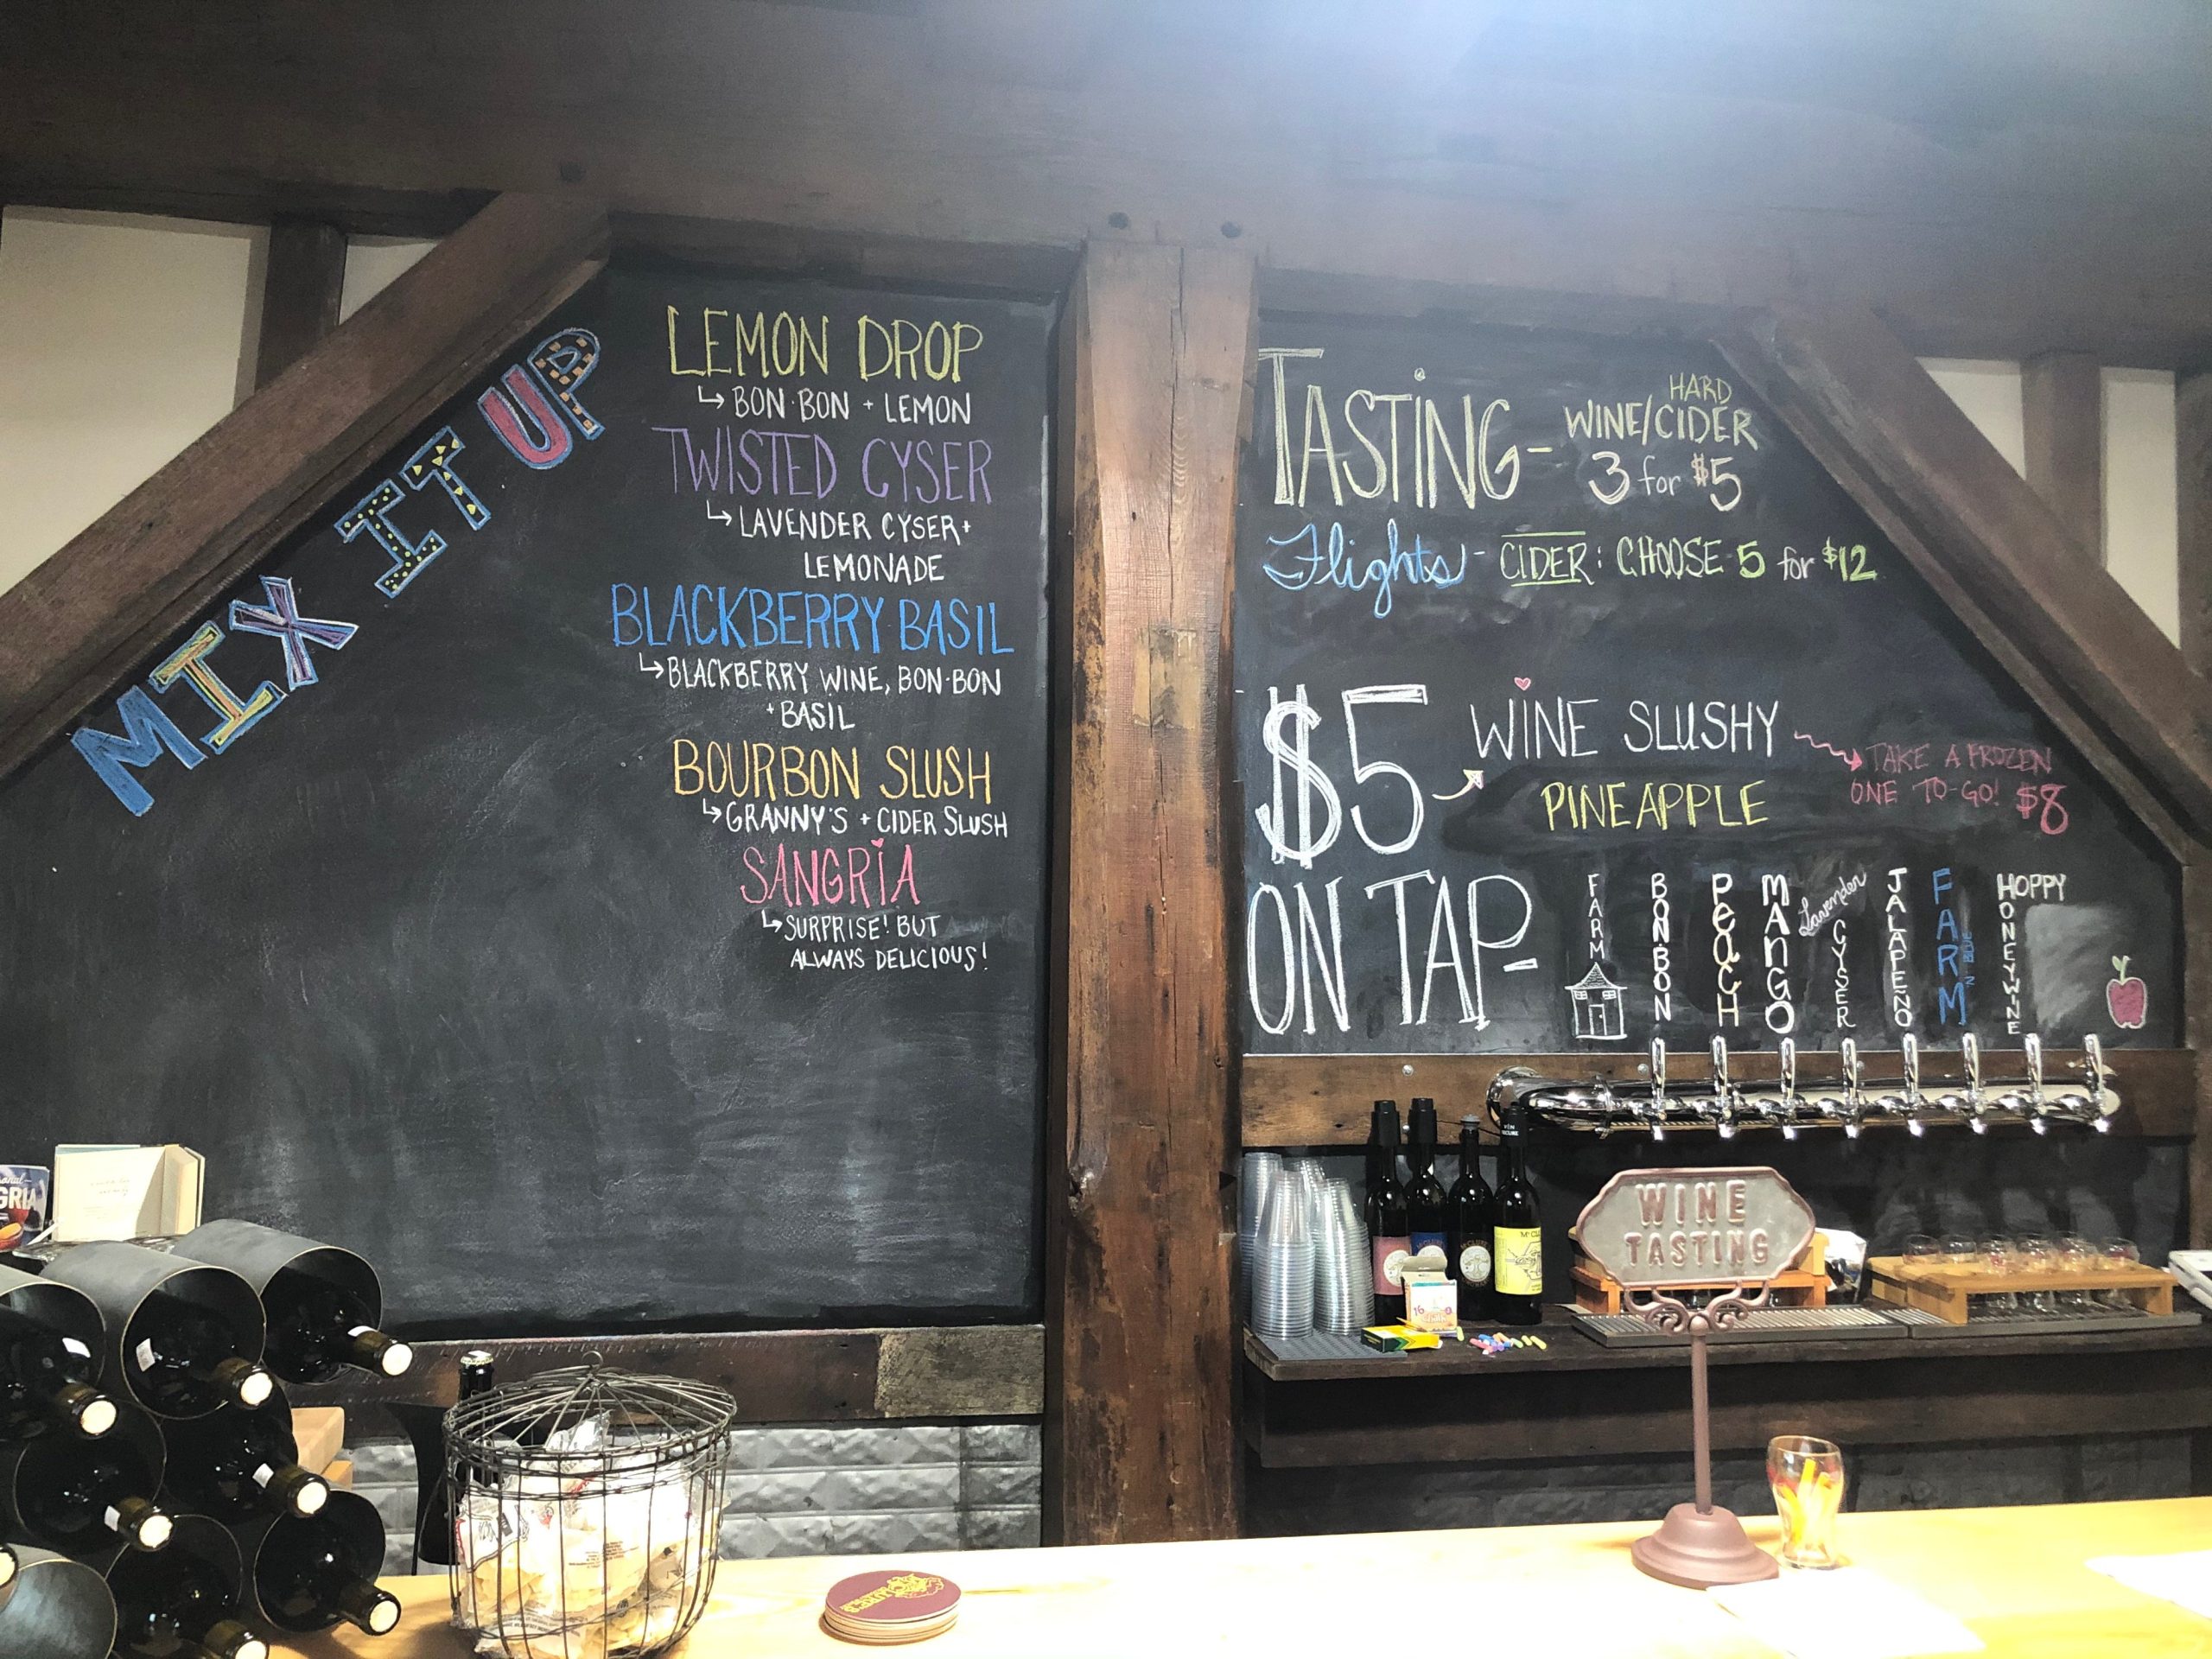 MIX IT UP
LEMON DROP
↳ BON·BON + LEMON
TWISTED CYSER
↳ LAVENDER CYSER +
LEMONADE
BLACKBERRY BASIL
↳ BLACKBERRY WINE, BON·BON
+ BASIL
BOURBON SLUSH
↳ GRANNY'S + CIDER SLUSH
SANGRIA
↳ SURPRISE! BUT
ALWAYS DELICIOUS!
TASTING - HARD
WINE/CIDER
3 for $5
Flights - CIDER: CHOOSE 5 for $12
$5 WINE SLUSHY
PINEAPPLE
TAKE A FROZEN
ONE TO-GO! $8
ON TAP -
FARM
BON·BON
PEACH
MANGO
Lavender
CYSER
JALAPENO
FARM
HOPPY
HONEYWINE
WINE
TASTING
GRIA